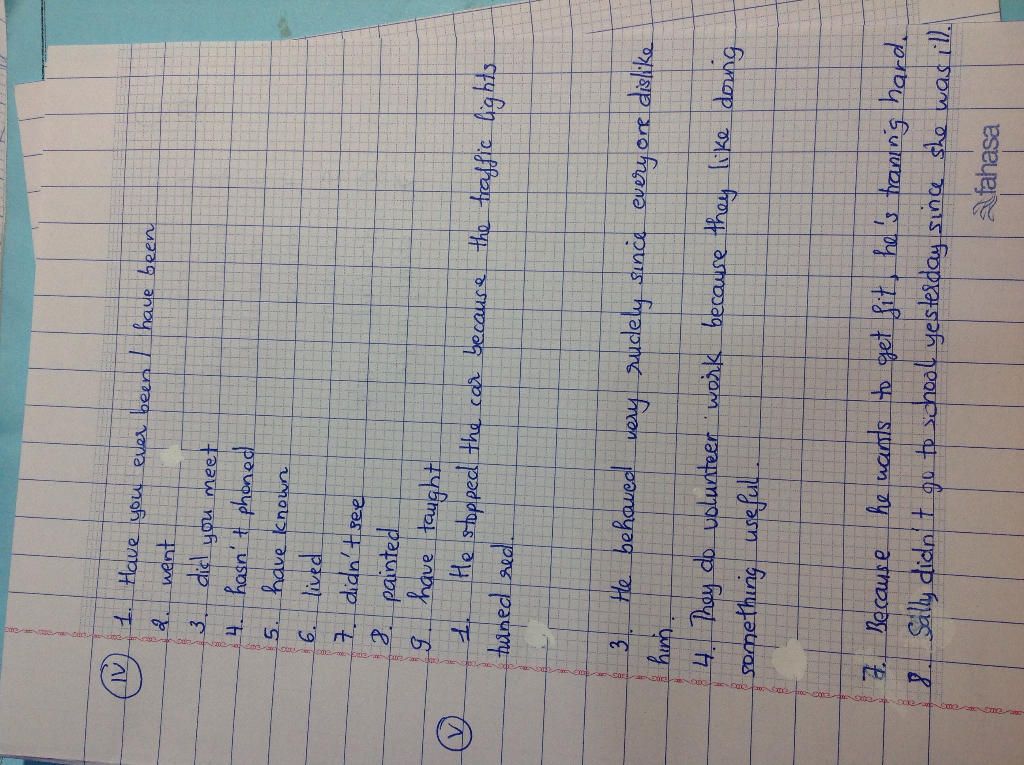 IV 1. Have you ever been / have been
2. went
3. did you meet
4. hasn't phoned
5. have known
6. lived
7. didn't see
8. painted
9. have taught
V 1. He stopped the car because the traffic lights
turned red.
3. He behaved very rudely since everyone dislike
him.
4. They do volunteer work because they like doing
something useful.
7. Because he wants to get fit, he's training hard.
8. Sally didn't go to school yesterday since she was ill.
fahasa